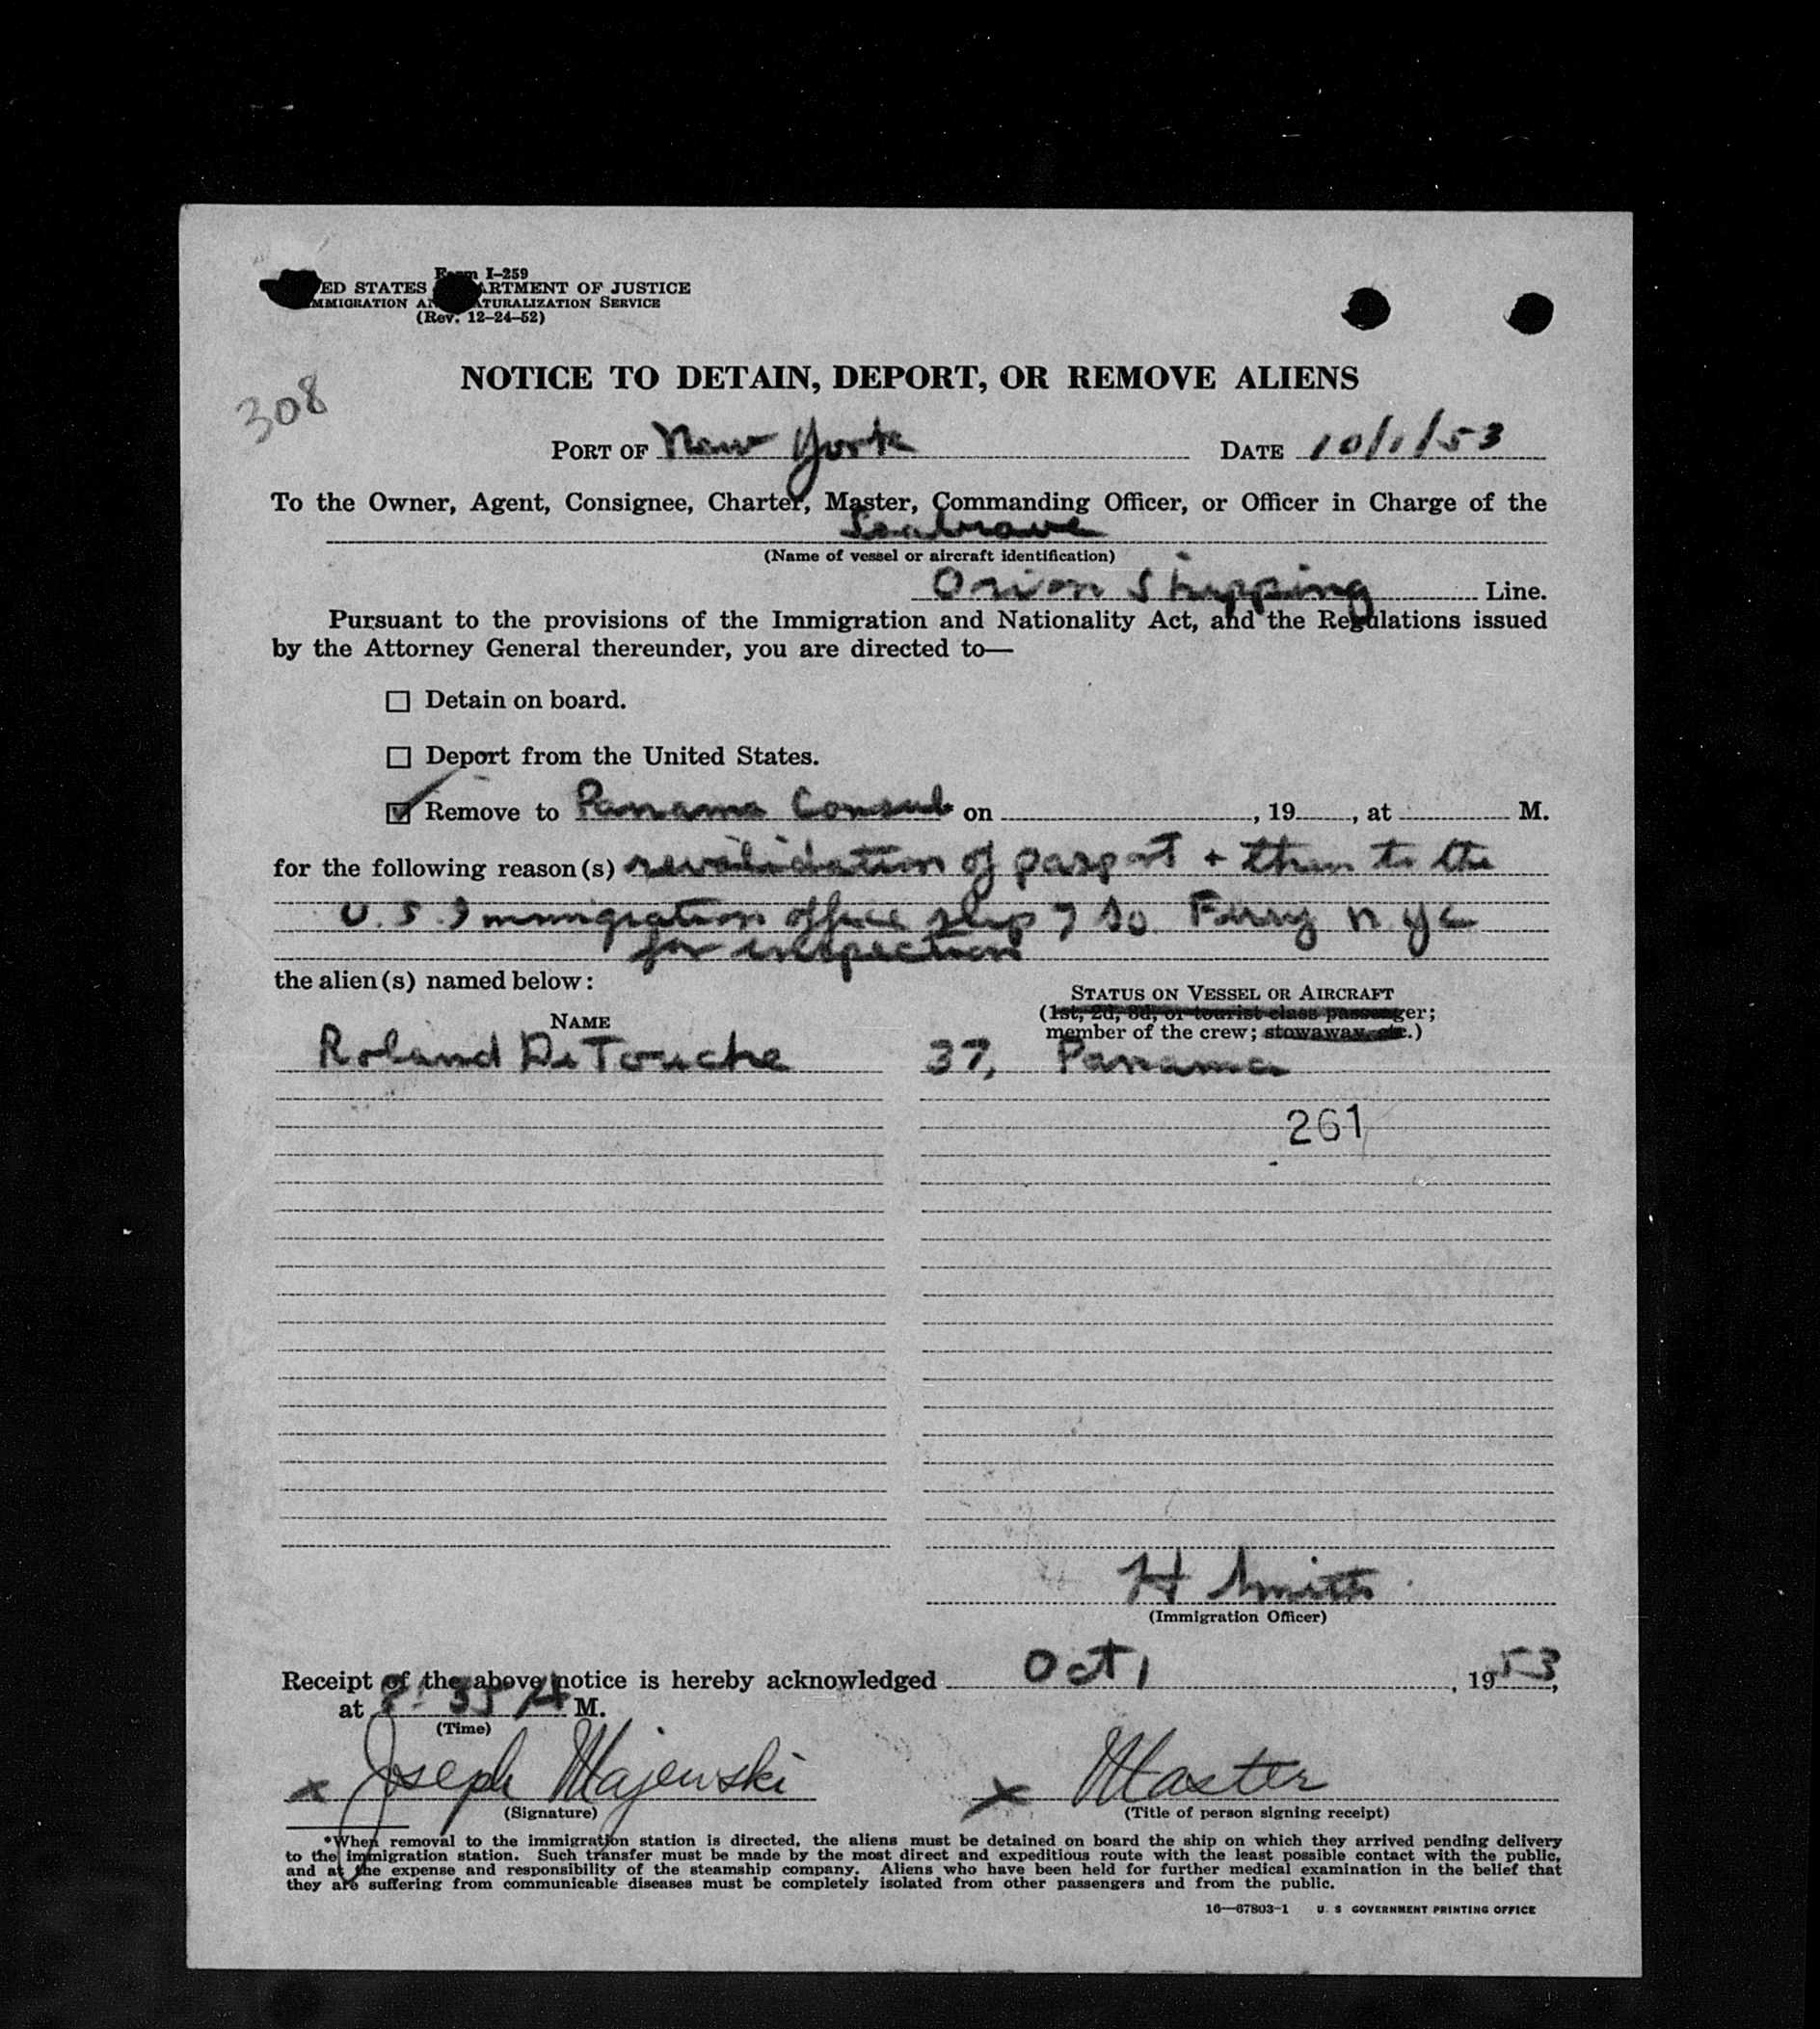 Form I-259
ED STATES ARTMENT OF JUSTICE
MMIGRATION AN ATURALIZATION SERVICE
(Rev. 12-24-52)
308
NOTICE TO DETAIN, DEPORT, OR REMOVE ALIENS
PORT OF New York DATE 10/1/53
To the Owner, Agent, Consignee, Charter, Master, Commanding Officer, or Officer in Charge of the
(Name of vessel or aircraft identification)
Orion Shipping Line.
Pursuant to the provisions of the Immigration and Nationality Act, and the Regulations issued
by the Attorney General thereunder, you are directed to—
☐ Detain on board.
☐ Deport from the United States.
☑ Remove to Panama Consul on , 19 , at M.
for the following reason(s) revalidation of pasport + then to the
U.S. Immigration office slip 7 So. Ferry N.Y.C
for inspection
the alien(s) named below:
STATUS ON VESSEL OR AIRCRAFT
(1st, 2d, 3d, or tourist class passenger;
member of the crew; stowaway, etc.)
NAME
Roland DeTouche 37, Panama
261
H Smith
(Immigration Officer)
Receipt of the above notice is hereby acknowledged Oct 1, 1953,
at 8:35 A M.
(Time)
x Joseph Majewski x Master
(Signature) (Title of person signing receipt)
*When removal to the immigration station is directed, the aliens must be detained on board the ship on which they arrived pending delivery
to the immigration station. Such transfer must be made by the most direct and expeditious route with the least possible contact with the public,
and at the expense and responsibility of the steamship company. Aliens who have been held for further medical examination in the belief that
they are suffering from communicable diseases must be completely isolated from other passengers and from the public.
16—67803-1 U. S GOVERNMENT PRINTING OFFICE